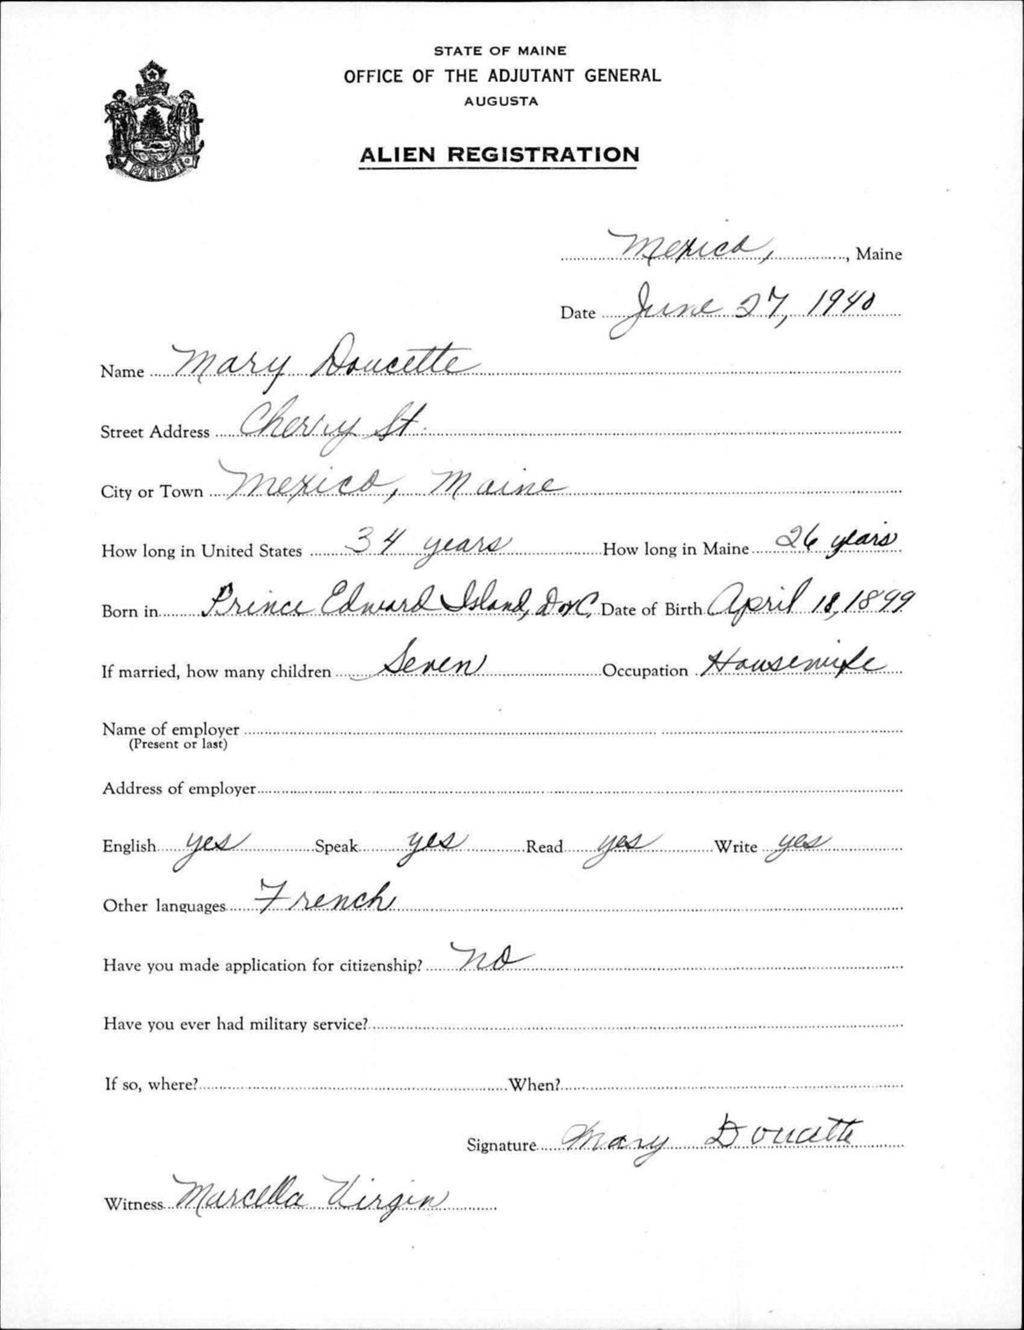 STATE OF MAINE
OFFICE OF THE ADJUTANT GENERAL
AUGUSTA
ALIEN REGISTRATION
MAINE
Mexico, , Maine
Date June 27, 1940
Name Mary Doucette
Street Address Cherry St.
City or Town Mexico, Maine
How long in United States 34 years How long in Maine 26 years
Born in Prince Edward Island, Date of Birth April 18, 1899
If married, how many children Seven Occupation Housewife
Name of employer
(Present or last)
Address of employer
English yes Speak yes Read yes Write yes
Other languages French
Have you made application for citizenship? No
Have you ever had military service?
If so, where? When?
Signature Mary Doucette
Witness Marcella Virgin